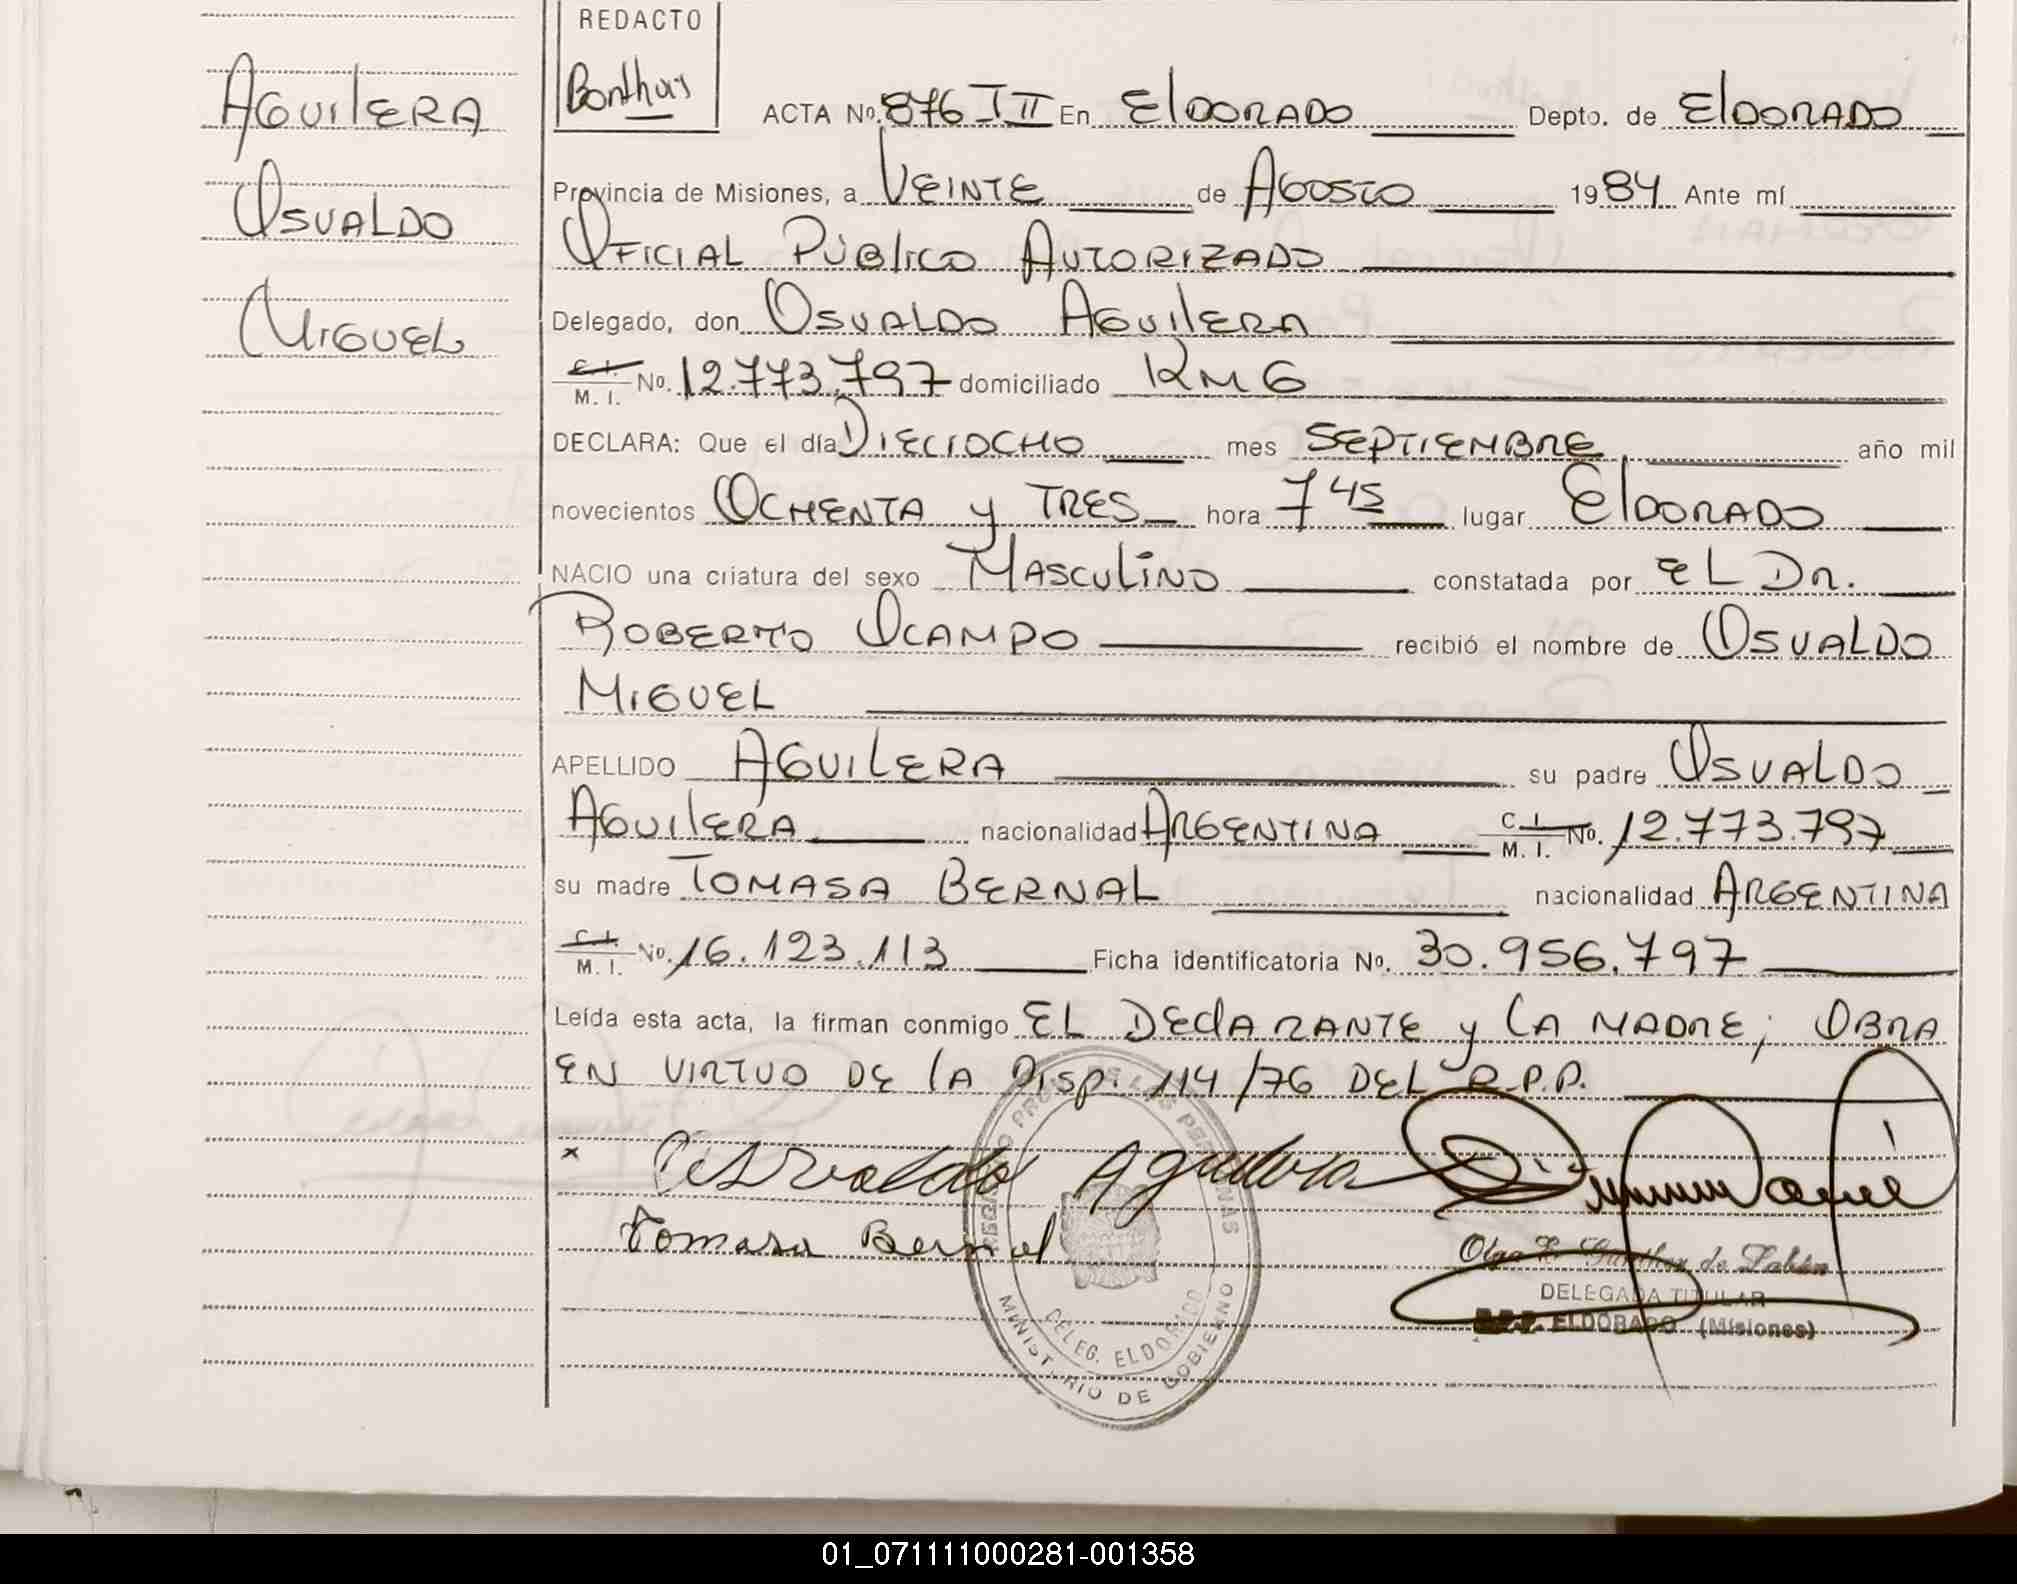 REDACTO
Bonthuis
AGUILERA
OSVALDO
MIGUEL
ACTA No. 876 T II En ELDORADO Depto. de ELDORADO
Provincia de Misiones, a VEINTE de AGOSTO 1984 Ante mí
OFICIAL PÚBLICO AUTORIZADO
Delegado, don OSVALDO AGUILERA
C. I. M. I. No. 12.773.797 domiciliado KM 6
DECLARA: Que el día DIECIOCHO mes SEPTIEMBRE año mil
novecientos OCHENTA y TRES hora 7 45 lugar ELDORADO
NACIO una criatura del sexo MASCULINO constatada por EL DR.
ROBERTO OCAMPO recibió el nombre de OSVALDO
MIGUEL
APELLIDO AGUILERA su padre OSVALDO
AGUILERA nacionalidad ARGENTINA C. I. M. I. No. 12.773.797
su madre TOMASA BERNAL nacionalidad ARGENTINA
C. I. M. I. No. 16.123.113 Ficha identificatoria No. 30.956.797
Leída esta acta, la firman conmigo EL DECLARANTE y LA MADRE; OBRA
EN VIRTUD DE LA DISP. 114/76 DEL R.P.P.
x Osvaldo Aguilera
Tomasa Bernal
DE LAS PERSONAS
DELEG. ELDORADO
MINISTERIO DE GOBIERNO
Olga de
DELEGADA TITULAR
R.P.P. ELDORADO (Misiones)
01_071111000281-001358